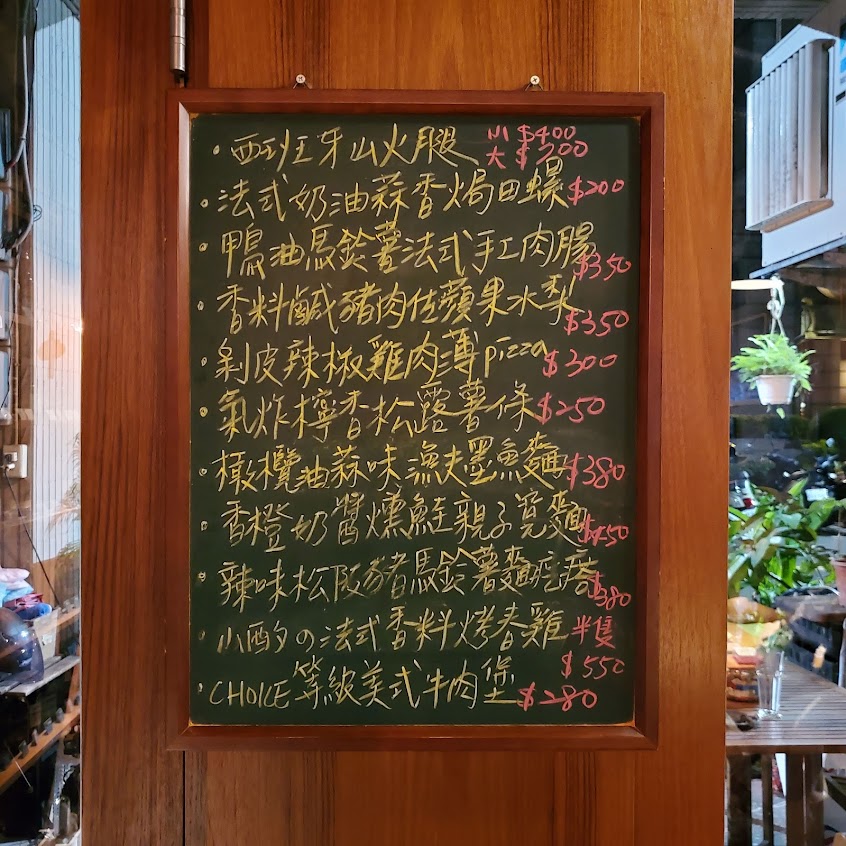 ·西班牙山火腿 小 $400
大 $700
·法式奶油蒜香焗田螺 $200
·鴨油馬鈴薯法式手工肉腸 $350
·香料鹹豬肉佐蘋果水梨 $350
·剝皮辣椒雞肉薄pizza $300
·氣炸檸香松露薯條 $250
·橄欖油蒜味漁夫墨魚麵 $380
·香橙奶醬燻鮭親子寬麵 $450
·辣味松阪豬馬鈴薯麵疙瘩 $380
·小酌の法式香料烤春雞 半隻
$550
·CHOICE等級美式牛肉堡 $280